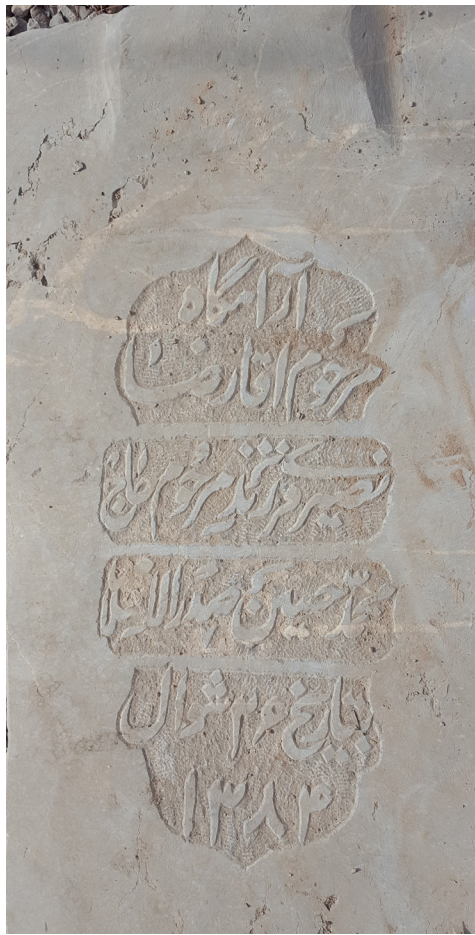 آرامگاه
مرحوم اقا رضا
نصیری فرزند مرحوم حاج
محمد حسین صدرالافاضل
بتاریخ ۲۶ شوال
۱۳۸۴